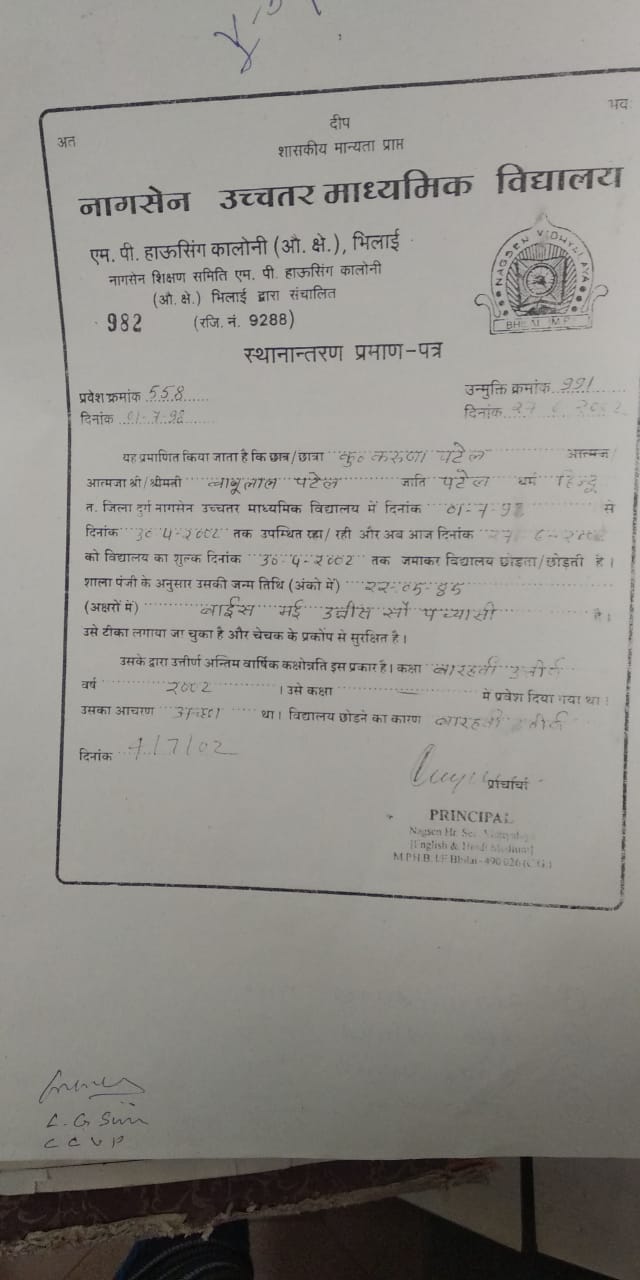 अत दीप भव:
शासकीय मान्यता प्राप्त
नागसेन उच्चतर माध्यमिक विद्यालय
एम. पी. हाऊसिंग कालोनी (औ. क्षे.), भिलाई
नागसेन शिक्षण समिति एम. पी. हाऊसिंग कालोनी
(औ. क्षे.) भिलाई द्वारा संचालित
982 (रजि. नं. 9288)
NAGSEN VIDHYALAYA
स्थानान्तरण प्रमाण-पत्र
प्रवेश क्रमांक 558 उन्मुक्ति क्रमांक 991
दिनांक 01-7-98 दिनांक 27 6 2002
यह प्रमाणित किया जाता है कि छात्र/छात्रा कु० करुणा पटेल आत्मज/
आत्मजा श्री/श्रीमती बाबूलाल पटेल जाति पटेल धर्म हिन्दू
त. जिला दुर्ग नागसेन उच्चतर माध्यमिक विद्यालय में दिनांक 01-7-98 से
दिनांक 30-4-2002 तक उपस्थित रहा/रही और अब आज दिनांक 27-6-2002
को विद्यालय का शुल्क दिनांक 30-4-2002 तक जमाकर विद्यालय छोड़ता/छोड़ती है।
शाला पंजी के अनुसार उसकी जन्म तिथि (अंको में) 22-05-85
(अक्षरों में) बाईस मई उन्नीस सौ पच्यासी है।
उसे टीका लगाया जा चुका है और चेचक के प्रकोप से सुरक्षित है।
उसके द्वारा उत्तीर्ण अन्तिम वार्षिक कक्षोन्नति इस प्रकार है। कक्षा बारहवीं उत्तीर्ण
वर्ष 2002 । उसे कक्षा — में प्रवेश दिया गया था।
उसका आचरण अच्छा था। विद्यालय छोडने का कारण बारहवीं उत्तीर्ण
दिनांक 1/7/02
प्राचार्य
PRINCIPAL
Nagsen Hr. Sec. Vidhyalaya
[English & Hindi Medium]
M.P.H.B. I.E Bhilai-490 026 (C.G.)